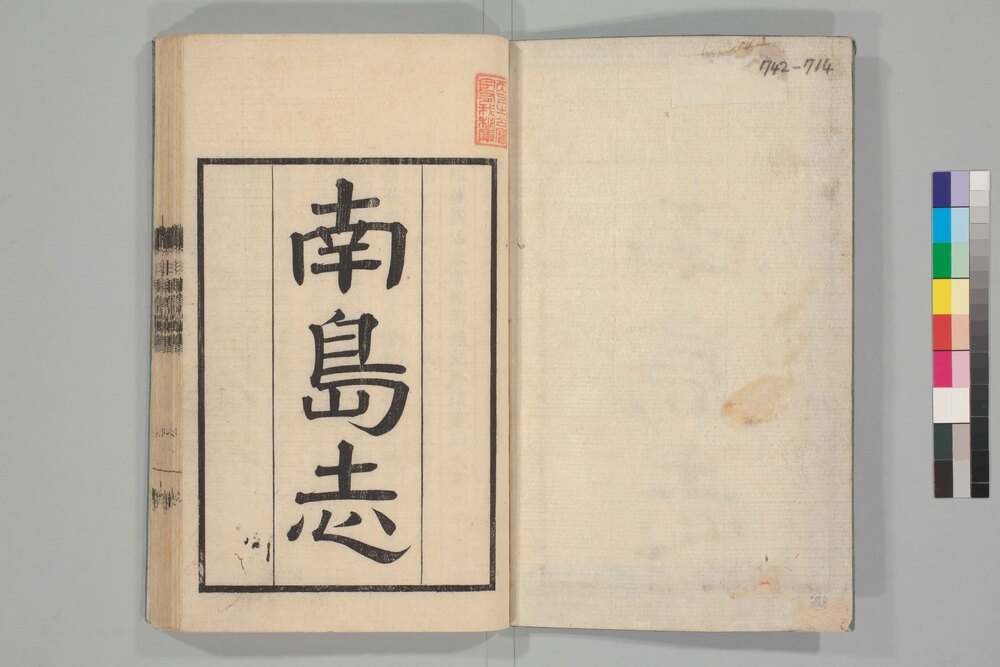 742-714
南島志